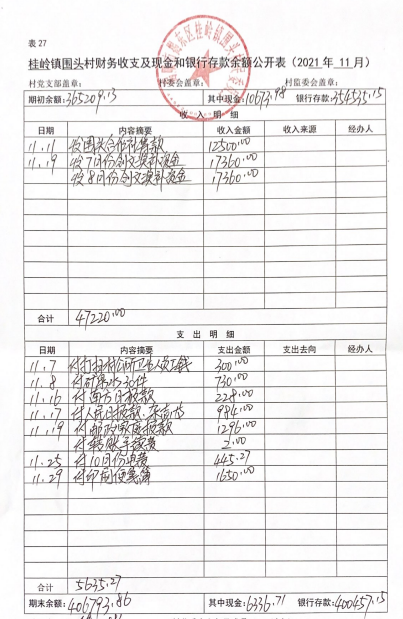 表27
桂岭镇围头村财务收支及现金和银行存款余额公开表（2021年 11月）
村党支部盖章： 村委会盖章： 村监委会盖章：
期初余额：365209.13 其中现金：10673.98 银行存款：354535.15
收 入 明 细
日期 内容摘要 收入金额 收入来源 经办人
11.11 收围头合作社募款 12500.00
11.19 收7月份创文奖补资金 17360.00
收8月份创文奖补资金 17360.00
合计 47220.00
支 出 明 细
日期 内容摘要 支出金额 支出去向 经办人
11.7 付打扫村公所卫生人员工钱 300.00
11.8 付矿泉水30件 730.00
11.16 付南方日报款 228.00
11.17 付人民日报款 984.00
11.19 付邮政 报款 1296.00
付转账手续费 2.00
11.25 付10月份电费 445.27
11.29 付印刷便笺簿 1650.00
合计 5635.27
期末余额：406793.86 其中现金：6336.71 银行存款：400457.15